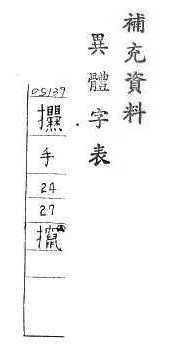 補充資料
異體字表
05137
手
24
27
攛